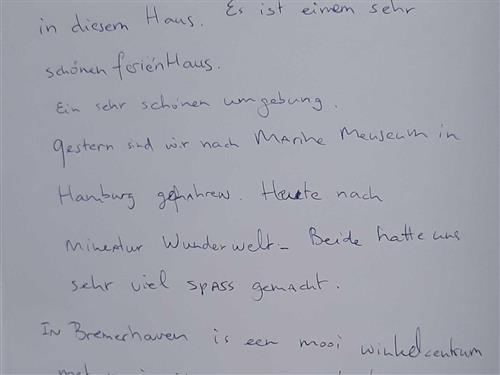 in diesem Haus. Es ist einem sehr
schönen ferienHaus.
Ein sehr schönen umgebung.
gestern sind wir nach MARINE Meuseum in
Hamburg gefahren. Heute nach
Mineatur Wunderwelt- Beide hatte uns
sehr viel SPASS gemacht.
IN Bremerhaven is een mooi winkelcentrum